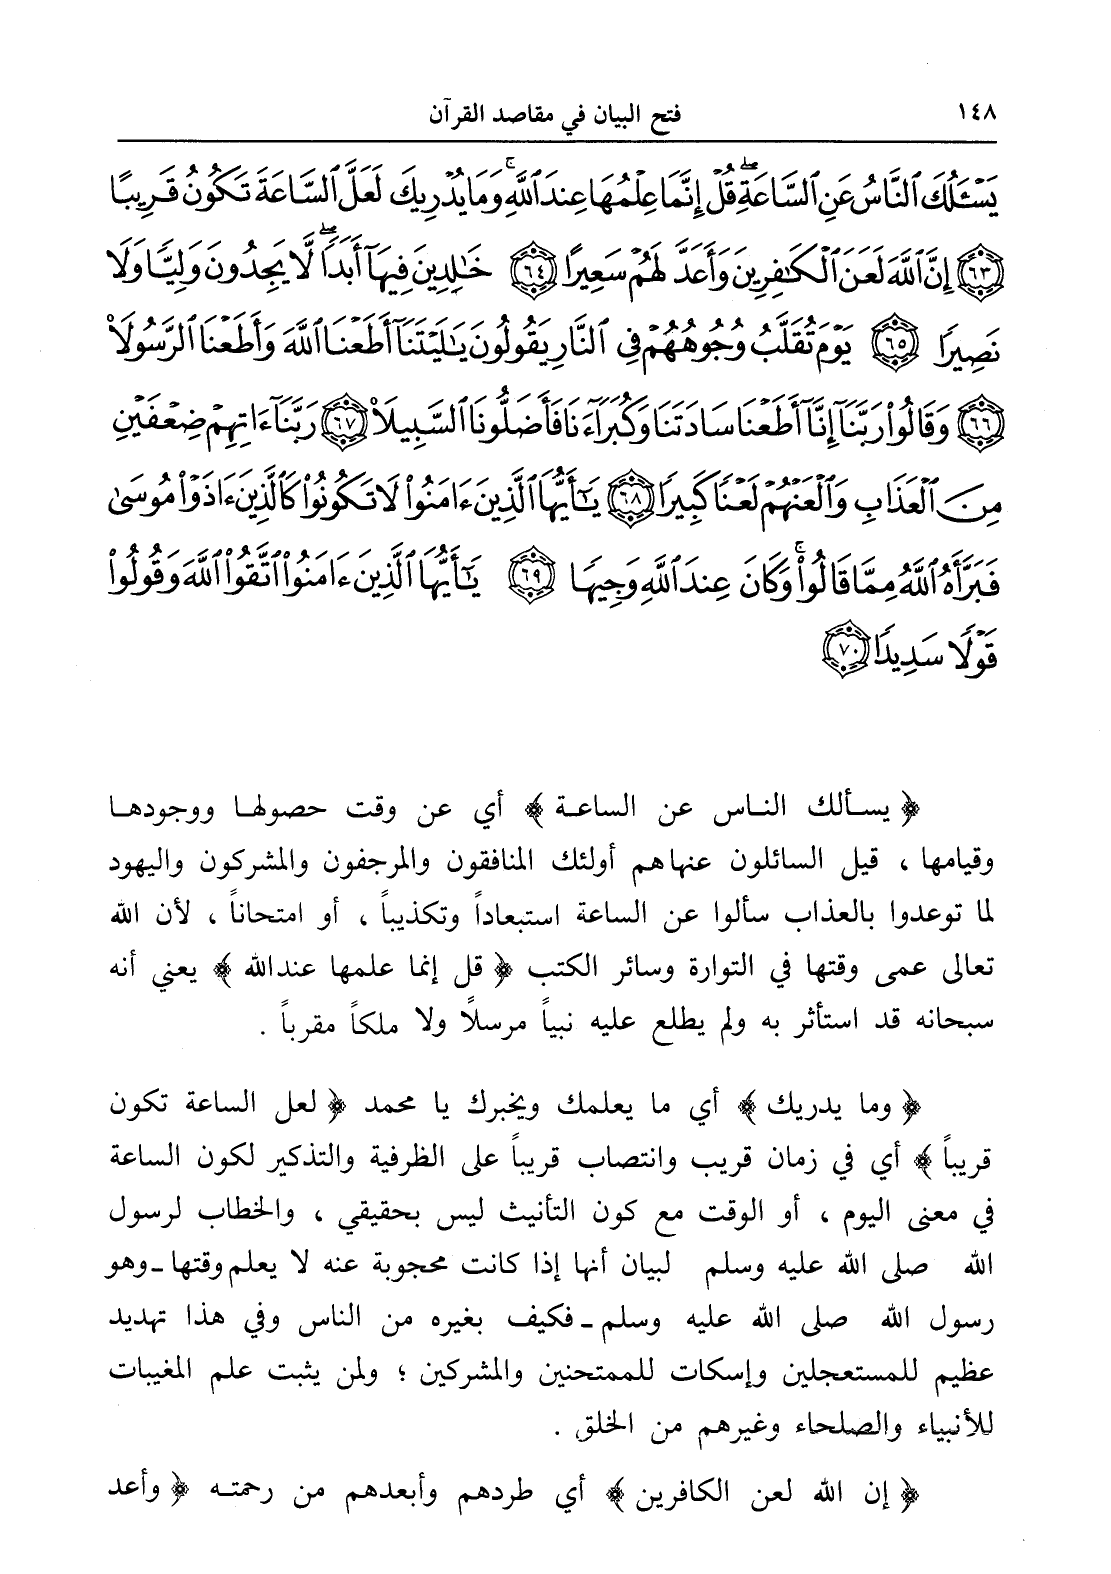 ١٤٨ فتح البيان في مقاصد القرآن
يَسْـَٔلُكَ ٱلنَّاسُ عَنِ ٱلسَّاعَةِۖ قُلْ إِنَّمَا عِلْمُهَا عِندَ ٱللَّهِۚ وَمَا يُدْرِيكَ لَعَلَّ ٱلسَّاعَةَ تَكُونُ قَرِيبًا
﴿٦٣﴾ إِنَّ ٱللَّهَ لَعَنَ ٱلْكَٰفِرِينَ وَأَعَدَّ لَهُمْ سَعِيرًا ﴿٦٤﴾ خَٰلِدِينَ فِيهَآ أَبَدًاۖ لَّا يَجِدُونَ وَلِيًّا وَلَا
نَصِيرًا ﴿٦٥﴾ يَوْمَ تُقَلَّبُ وُجُوهُهُمْ فِى ٱلنَّارِ يَقُولُونَ يَٰلَيْتَنَآ أَطَعْنَا ٱللَّهَ وَأَطَعْنَا ٱلرَّسُولَا۠
﴿٦٦﴾ وَقَالُوا۟ رَبَّنَآ إِنَّآ أَطَعْنَا سَادَتَنَا وَكُبَرَآءَنَا فَأَضَلُّونَا ٱلسَّبِيلَا۠ ﴿٦٧﴾ رَبَّنَآ ءَاتِهِمْ ضِعْفَيْنِ
مِنَ ٱلْعَذَابِ وَٱلْعَنْهُمْ لَعْنًا كَبِيرًا ﴿٦٨﴾ يَٰٓأَيُّهَا ٱلَّذِينَ ءَامَنُوا۟ لَا تَكُونُوا۟ كَٱلَّذِينَ ءَاذَوْا۟ مُوسَىٰ
فَبَرَّأَهُ ٱللَّهُ مِمَّا قَالُوا۟ۚ وَكَانَ عِندَ ٱللَّهِ وَجِيهًا ﴿٦٩﴾ يَٰٓأَيُّهَا ٱلَّذِينَ ءَامَنُوا۟ ٱتَّقُوا۟ ٱللَّهَ وَقُولُوا۟
قَوْلًا سَدِيدًا ﴿٧٠﴾
﴿ يسألك الناس عن الساعة ﴾ أي عن وقت حصولها ووجودها
وقيامها ، قيل السائلون عنها هم أولئك المنافقون والمرجفون والمشركون واليهود
لما توعدوا بالعذاب سألوا عن الساعة استبعاداً وتكذيباً ، أو امتحاناً ، لأن الله
تعالى عمى وقتها في التوارة وسائر الكتب ﴿ قل إنما علمها عندالله ﴾ يعني أنه
سبحانه قد استأثر به ولم يطلع عليه نبياً مرسلاً ولا ملكاً مقرباً .
﴿ وما يدريك ﴾ أي ما يعلمك ويخبرك يا محمد ﴿ لعل الساعة تكون
قريباً ﴾ أي في زمان قريب وانتصاب قريباً على الظرفية والتذكير لكون الساعة
في معنى اليوم ، أو الوقت مع كون التأنيث ليس بحقيقي ، والخطاب لرسول
الله صلى الله عليه وسلم لبيان أنها إذا كانت محجوبة عنه لا يعلم وقتها ـ وهو
رسول الله صلى الله عليه وسلم ـ فكيف بغيره من الناس وفي هذا تهديد
عظيم للمستعجلين وإسكات للممتحنين والمشركين ؛ ولمن يثبت علم المغيبات
للأنبياء والصلحاء وغيرهم من الخلق .
﴿ إن الله لعن الكافرين ﴾ أي طردهم وأبعدهم من رحمته ﴿ وأعد